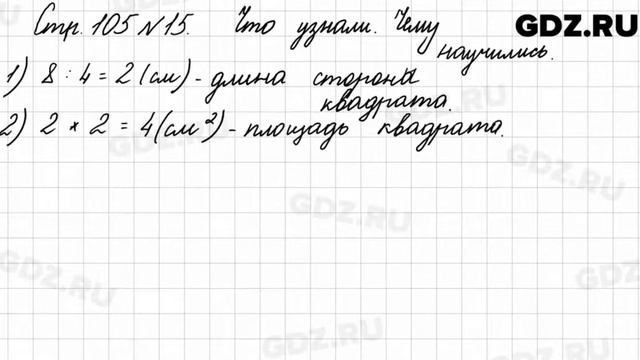 Стр. 105 № 15. Что узнали. Чему
научились.
GDZ.RU
1) 8 : 4 = 2 (см) - длина стороны
квадрата.
2) 2 * 2 = 4 (см²) - площадь квадрата.
GDZ.RU
GDZ.RU
GDZ.RU
GDZ.RU
GDZ.RU
GDZ.RU